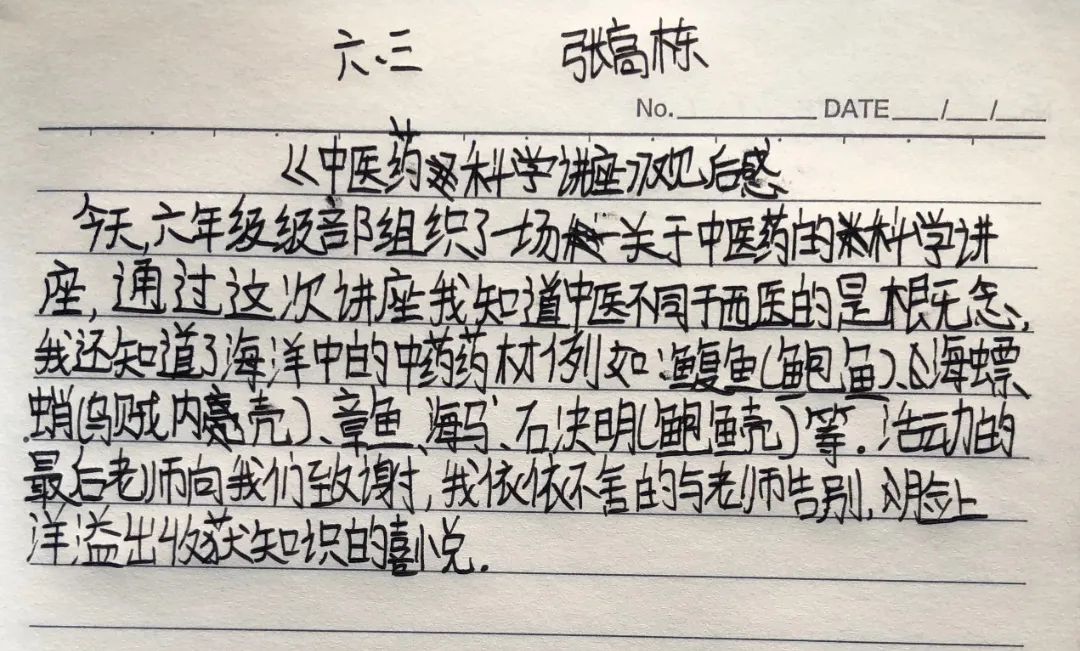 六.三 张高栋
No. DATE / /
《中医药科学讲座》观后感
今天,六年级级部组织了一场关于中医药的科学讲
座,通过这次讲座我知道中医不同于西医的是根无念、
我还知道了海洋中的中药药材例如:鳆鱼(鲍鱼)、海螵
蛸(乌贼内壳)、章鱼、海马、石决明(鲍鱼壳)等.活动的
最后老师向我们致谢,我依依不舍的与老师告别,脸上
洋溢出收获知识的喜悦.